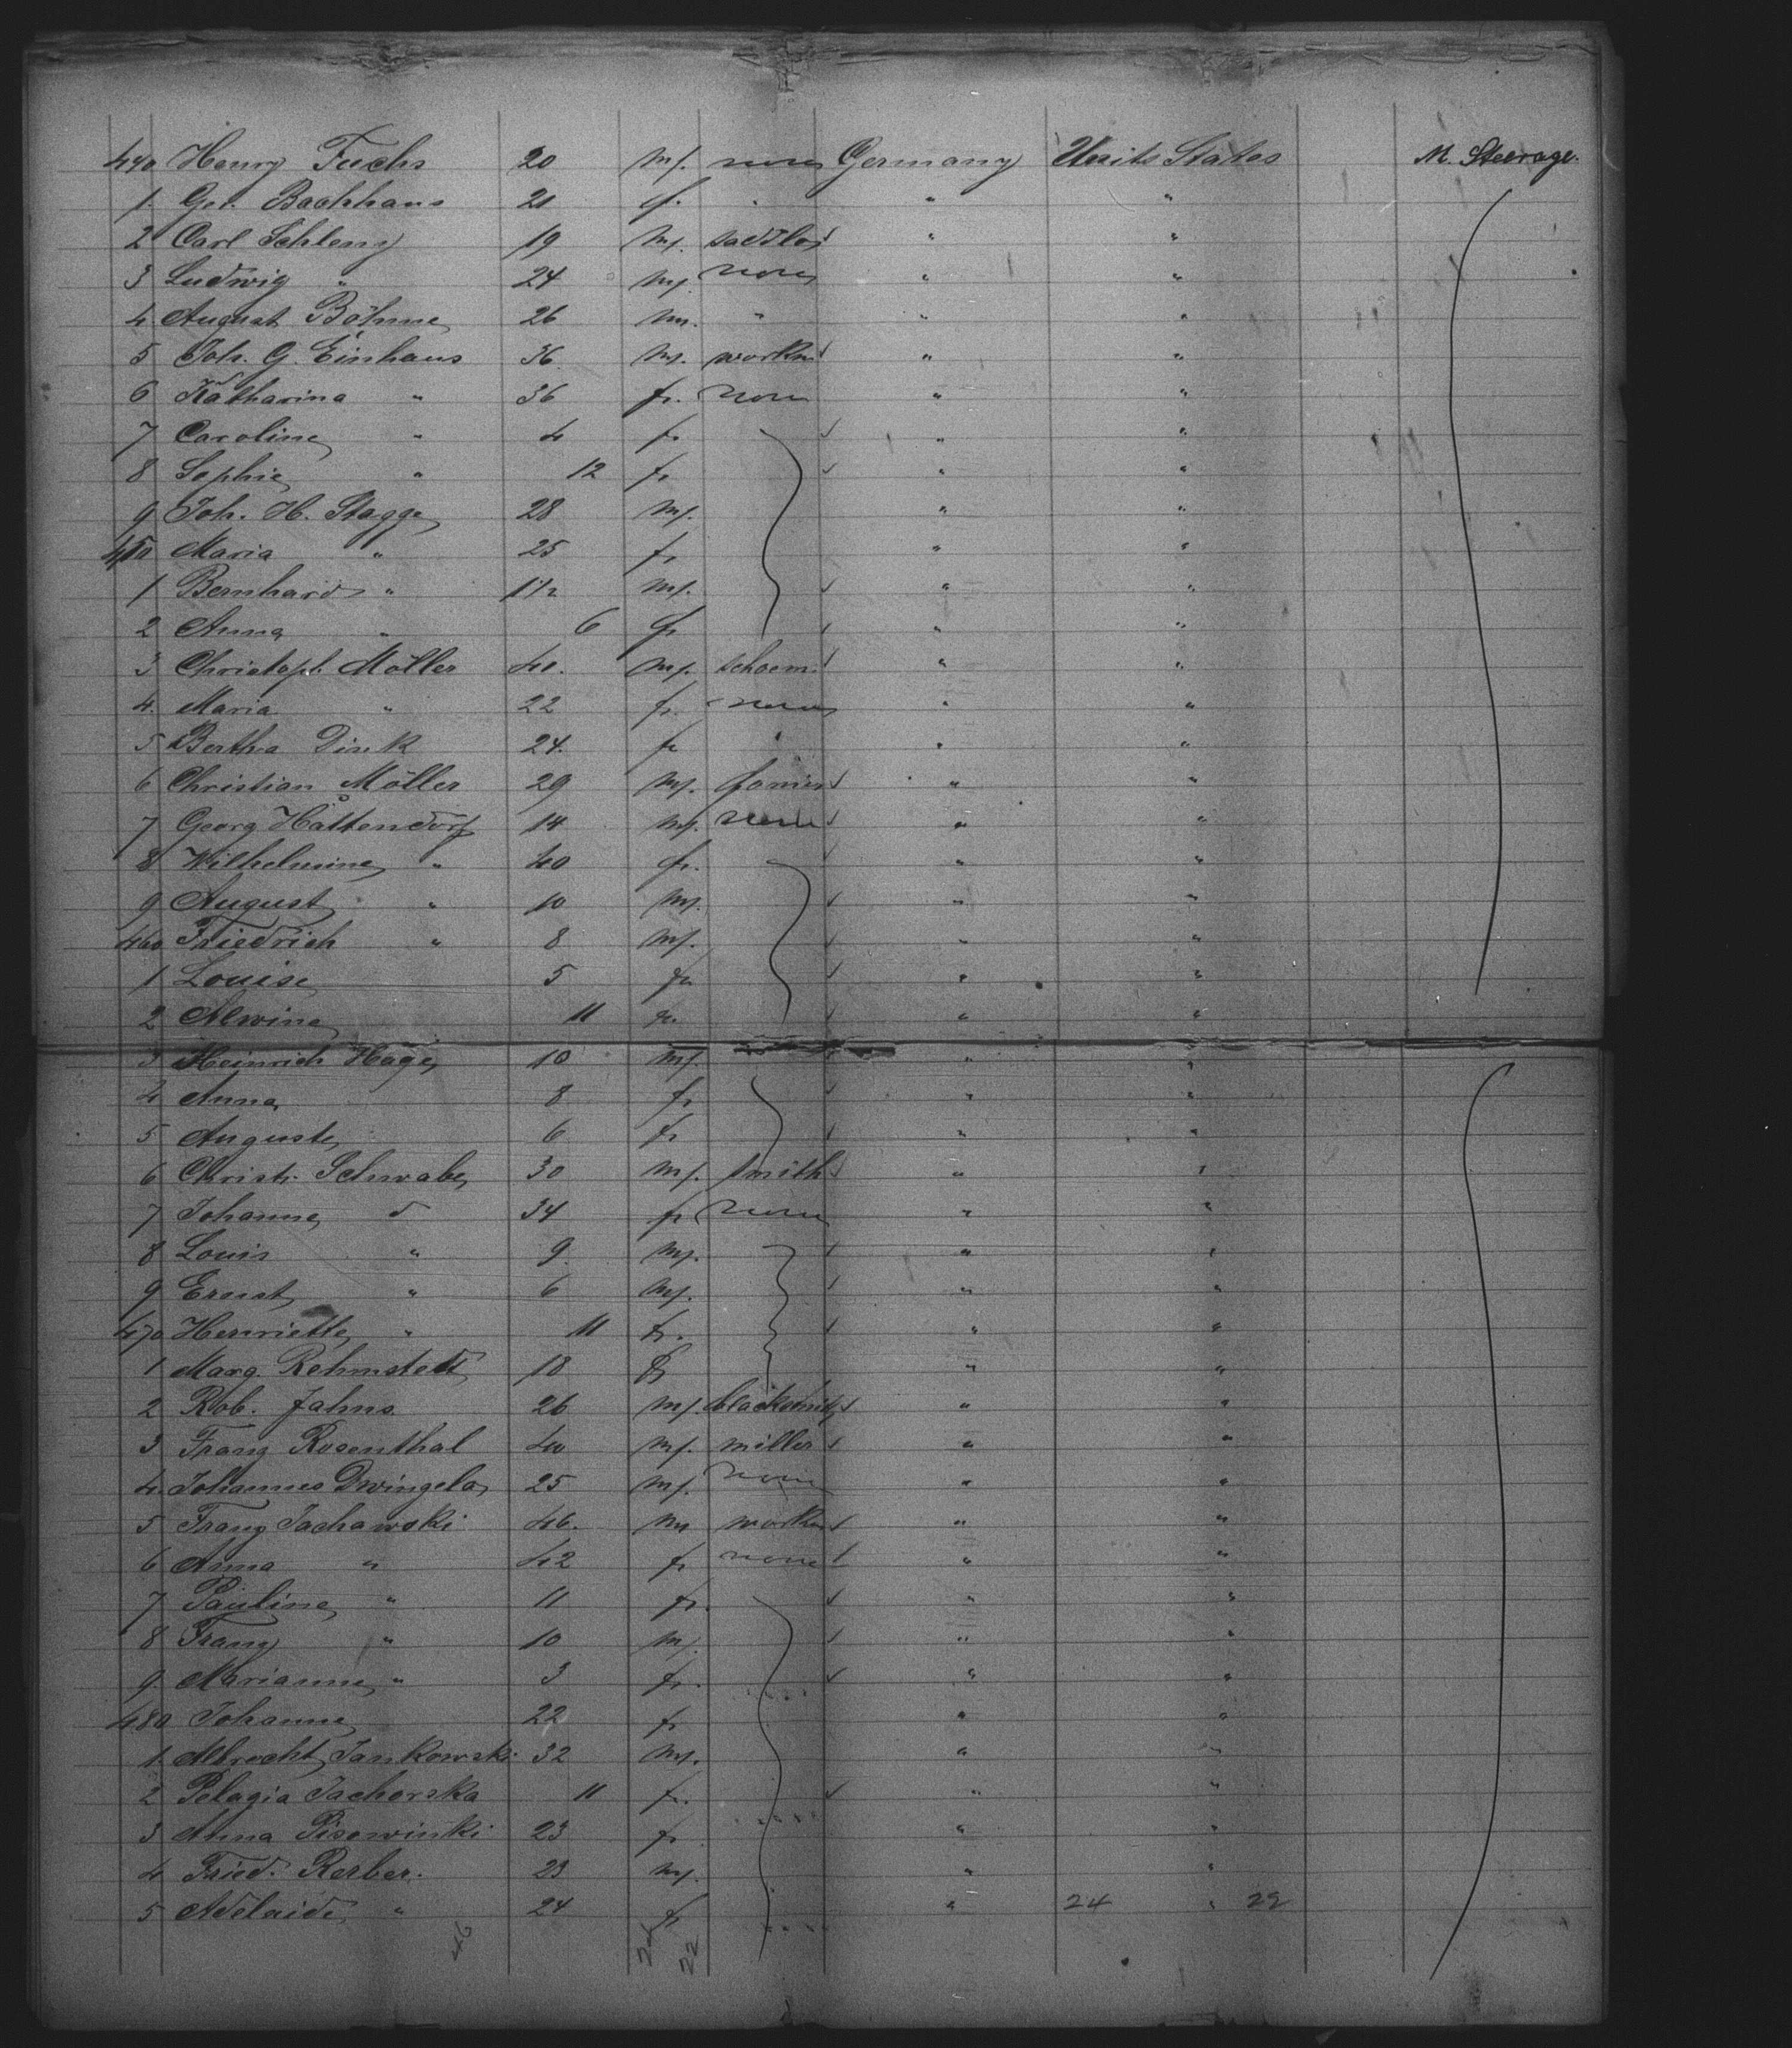 440 Henry Fuchs 20 m. none Germany Unite States M. Steerage.
1. Ge. Bachhaus 21 f. " " "
2 Carl Schleng 19 m. sadtler " "
3 Ludwig " 24 m. none " "
4 August Böhme 26 m. " " "
5 Joh. G. Einhaus 36 m. workm " "
6 Katharina " 36 f. none " "
7 Caroline " 4 f. " "
8 Sophie " 12 f. " "
9 Joh. H. Stagge 28 m. " "
450 Maria " 25 f. " "
1 Bernhard " 1 1/2 m. " "
2 Anna " 6 f. " "
3 Christoph Möller 40. m. schoem. " "
4. Maria " 22 f. none " "
5 Bertha Dink 24. f. " " "
6 Christian Möller 29 m. " "
7 Georg Hattendorf 14 m. none " "
8 Wilhelmine " 40 f. " "
9 August " 10 m. " "
460 Friedrich " 8 m. " "
1 Louise 5 f. " "
2 Alwine 11 f. " "
3 Heinrich Hage 10 m. " "
4 Anna 8 f. " "
5 Auguste 6 f. " "
6 Christ. Schwabe 30 m. smith " "
7 Johanne d 34 f. none " "
8 Louis " 9. m. " "
9 Ernst " 6 m. " "
470 Henriette " 11 f. " "
1 Marg. Rehmstedt 18 f. " "
2 Rob. Jahns 26 m. blacksmith " "
3 Franz Rosenthal 40 m. miller " "
4. Johannes Dwingelo 25 m. none " "
5 Franz Jachawski 46. m. workm " "
6 Anna " 42 f. none " "
7 Pauline " 11 f. " "
8 Franz " 10 m. " "
9. Marianne " 3 f. " "
480 Johanne 22 f. " "
1. Albrecht Jankowski 32 m. " "
2 Pelagia Jachorska 11 f. " "
3 Anna Pisowinki 23 f. " "
4 Fried. Rerber. 23 m. " "
5 Adelaide " 24 f. " 24 " 22
46 24 22